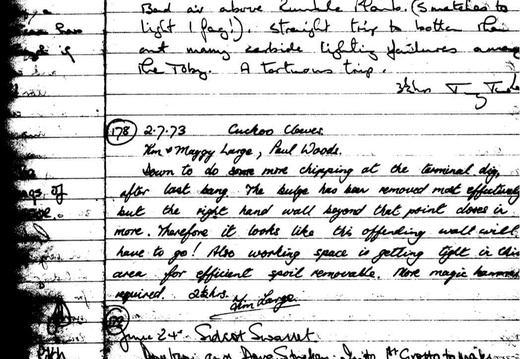 Bad air above Rumble Ramb. (5 matches to
light 1 fag!), straight trip to bottom then
out many carbide lighting failures among
the Toby. A tortuous trip.
3½hrs
178 2.7.73 Cuckoo Cleeves
Kim & Maggy Large, Paul Woods.
Down to do some more chipping at the terminal dig,
after last bang. The bulge has been removed most effectively
but the right hand wall beyond that point closes in
more. Therefore it looks like this offending wall will
have to go! Also working space is getting tight in this
area for efficient spoil removable. More magic hammer
required. 2½hrs.
Kim Large
June 24th Sidcot Swallet